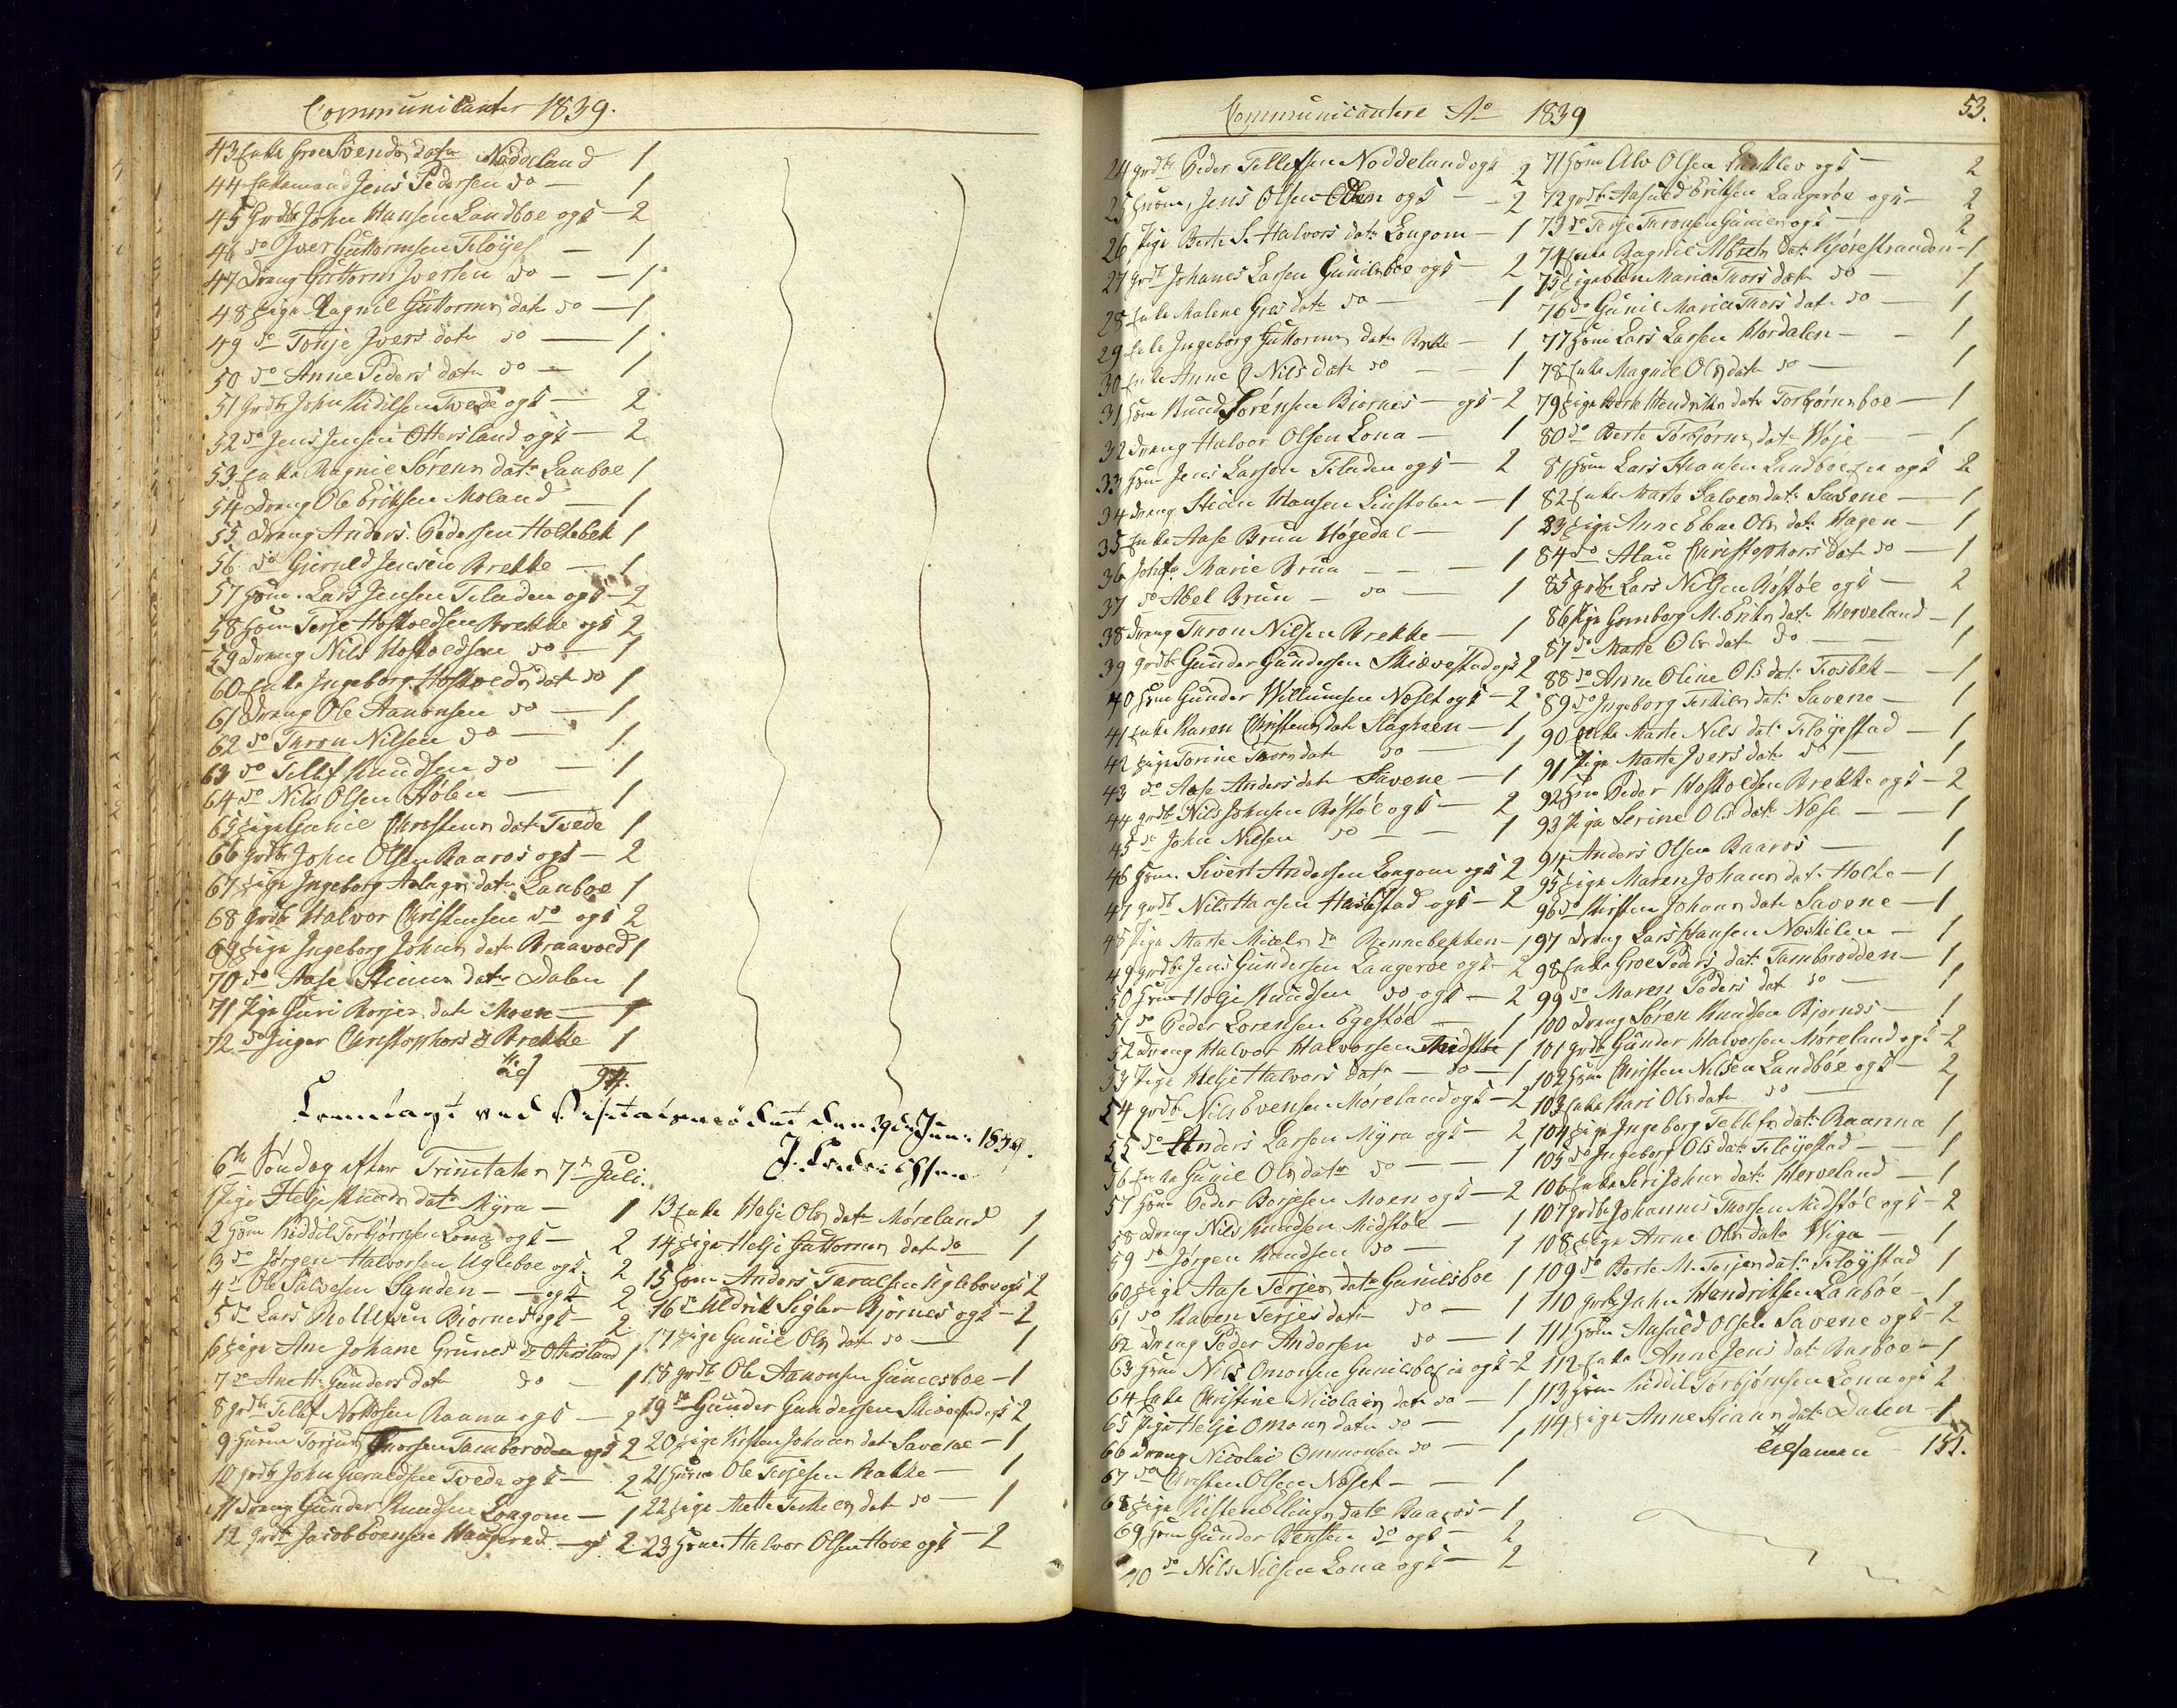 Communicanter 1839.
43 Enke Groe Svends datr Noddeland 1
44 Enkemand Jens Pedersen do — 1
45 Grdbr John Hansen Landboe ogs — 2
46 do Iver Guttormsen Tiløyes — 1
47 Dreng Guttorm Iversen do — 1
48 Pige Ragnil Guttorms datr do — 1
49 do Tonje Ivers datr do — 1
50 do Anne Peders datr do — 1
51 Grdbr John Kidilsen Tvede ogs — 2
52 do Jens Jensen Ottersland ogs — 2
53 Enke Ragnie Sørens datr Lanboe 1
54 Dreng Ole Eriksen Moland — 1
55 Dreng Anders Pedersen Holtebek 1
56 do Gieruld Jensen Brekke — 1
57 Huusm. Lars Jensen Tiladen ogs — 2
58 Huusm Terje Hoskoldsen Brekke ogs 2
59 Dreng Nils Hoskoldsen do — 1
60 Enke Ingeborg Hoskolds dat do 1
61 Dreng Ole Aanonsen do — 1
62 do Thron Nilsen do — 1
63 do Tellef Knudsen do — 1
64 do Nils Olsen Hølen — 1
65 Pige Gunil Christens datr Tvede 1
66 Grdbr John Olsen Baaros ogs — 2
67 Pige Ingeborg Aslags datr Lanboe 1
68 Grdbr Halvor Christensen do ogs 2
69 Pige Ingeborg Johns datr Braavold 1
70 do Aase Stians datr Dalen 1
71 Pige Guri Borjes datr Moen — 1
72 do Inger Christophers d Brekke 1
94.
Fremlagt ved Visitatsmødet den 29de Juni 1839.
J. Fredrichsen
6te Søndag efter Trinitatis 7de Juli.
1 Pige Helje Knuds datr Myra — 1
2 Huusm Kiddil Torbjørnsen Lona ogs — 2
3 do Jørgen Halvorsen Ugleboe ogs 2
4 do Ole Salvesen Sanden — ogs 2
5 do Lars Rollefsen Biornes ogs — 2
6 Pige Ane Johane Grunes dr Ottersland 1
7 do Aneth Gunders datr do — 1
8 Grdbr Tellef Nottosen Raana ogs — 2
9 Huusm Torjus Thorsen Tamborodden ogs 2
10 Grdbr John Gieruldsen Tvede ogs — 2
11 Dreng Gunder Knudsen Longom — 1
12 Grdbr Jacob Evensen Haugered — ogs 2
13 Enke Helje Ols datr Møreland 1
14 Pige Helje Guttorms datr do — 1
15 Huusm Anders Taralsen Ugleboe ogs 2
16 do Uldrik Sigler Bjornes ogs — 2
17 Pige Gunil Ols dat do — 1
18 Grdbr Ole Aanonsen Gunelsboe — 1
19 do Gunder Gundersen Skiævestad ogs 2
20 Pige Kirsten Johans dat Savene — 1
21 Huusm Ole Terjesen Bakke — 1
22 Pige Mette Terkels dat do — 1
23 Huusm. Halvor Olsen Hove ogs — 2
Communicantere Ao 1839
53.
24 Grdbr Peder Tellefsen Noddeland ogs 2
25 Huusm, Jens Olsen ogs — 2
26 Pige Berte S. Halvors datr Longom — 1
27 Grdb Johanes Larsen Gunilsboe ogs — 2
28 Enke Malene Gres datr do — 1
29 Enke Ingeborg Guttorms datr Brekke — 1
30 Enke Anne Nils datr do — 1
31 Huusm Knud Sørensen Biornes — ogs — 2
32 Dreng Halvor Olsen Lona — 1
33 Huusm Jens Larsen Tiladen ogs — 2
34 Dreng Stian Hansen Linstolen — 1
35 Enke Aase Bruun Høgedal — 1
36 Jomfr. Marie Bruun — 1
37 do Abel Bruun — do — 1
38 Dreng Thron Nilsen Brekke — 1
39 Grdbr Gunder Gundersen Skiævestad ogs 2
40 Huusm Gunder Willumsen Næset ogs — 2
41 Enke Karen Christens datr Slaghaen — 1
42 Pige Torine Thors datr do — 1
43 do Aase Anders datr Savene — 1
44 Grdbr Nils Johnsen Røstøl ogs — 2
45 do John Nilsen do — 1
46 Huusm. Sivert Andersen Longom ogs 2
47 Grdbr Nils Hansen Haslestad ogs — 2
48 Pige Marte Micels Dr Rennebekken — 1
49 Grdbr Jens Gundersen Langerøe ogs — 2
50 Huusm Helje Knudsen do ogs — 2
51 do Peder Lorensen Egestøe — 1
52 Dreng Halvor Halvorsen Midstøe 1
53 Pige Helje Halvors datr — do — 1
54 Grdbr Nils Evensen Møreland ogs — 2
55 do Anders Larsen Myra ogs — 2
56 Enke Gunil Ols datr do — 1
57 Huusm Peder Borjesen Moen ogs — 2
58 Dreng Nils Knudsen Midstøl — 1
59 do Jørgen Knudsen do — 1
60 Pige Aase Terjes datr Gunilsboe 1
61 do Karen Terjes datr do — 1
62 Dreng Peder Andersen do — 1
63 Huusm Nils Omonsen Gunilsboe ogs — 2
64 Enke Christine Nicolais datr do — 1
65 Pige Helje Omons datr do — 1
66 Dreng Nicolai Ommonsen do — 1
67 do Christen Olsen Næset — 1
68 Pige Kisten Ellings datr Baaros — 1
69 Huusm Gunder Bentsen do ogs — 2
70 do Nils Nilsen Lona ogs — 2
71 Huusm Alv Olsen ogs — 2
72 Grdbr Aasuld Eriksen Langerøe ogs — 2
73 do Terje Thronsen ogs — 2
74 Enke Ragnil dat Kjørestranden — 1
75 Pige Maria Thors datr do — 1
76 do Gunil Maria Thors dat do — 1
77 Huusm Lars Larsen Hordalen — 1
78 Enke Magnil Ols datr do — 1
79 Pige Berte Hendriks datr Torbjørnsboe — 1
80 do Berte Torbjørns datr Høje — 1
81 Huusm Lars Hansen Landboe ogs 2
82 Enke Marte Salves datr Savene — 1
83 Pige Anne Elene Ols dat Hagen — 1
84 do Christophers datr do — 1
85 Grdbr Lars Nilsen Røstøl ogs — 2
86 Pige Gunborg M. Eriks datr Herveland — 1
87 do Marte Ols datr do — 1
88 do Anne Oline Ols dat Fiosbek — 1
89 do Ingeborg Terkils dat Savene — 1
90 Enke Marte Nils dat Tiløyestad — 1
91 Pige Marte Ivers datr do — 1
92 Huusm Peder Hoskoldsen Brekke ogs — 2
93 Pige Serine Ols datr Næse — 1
94 Anders Olsen Baaros — 1
95 Pige Maren Johans dat Holte — 1
96 do Kirsten Johans datr Savene — 1
97 Dreng Lars Hansen Næskilen — 1
98 Enke Groe Peders dat. Tamborodden — 1
99 do Maren Peders dat do — 1
100 Dreng Søren Knudsen Bjornes — 1
101 Grdbr Gunder Halvorsen Møreland ogs — 2
102 Huusm Christen Nilsen Landbøe ogs — 2
103 Enke Kari Ols datr do — 1
104 Pige Ingeborg Tellefs dat Raanna 1
105 do Ingeborg Ols dat Tiløyestad — 1
106 Enke Siri Johns datr Herveland — 1
107 Grdbr Johannes Thorsen Midstøl ogs — 2
108 Pige Anne Ols datr Wiga — 1
109 do Berte M. Terjes datr Tiløystad 1
110 Grdbr John Hendriksen Lanbøe — 1
111 Huusm Aasuld Olsen Savene ogs — 2
112 Enke Anne Jens dat Aarboe — 1
113 Huusm Kiddil Torbjørnsen Lona ogs 2
114 Pige Anne Stians datr Dalen — 1
Tilsamen — 151.